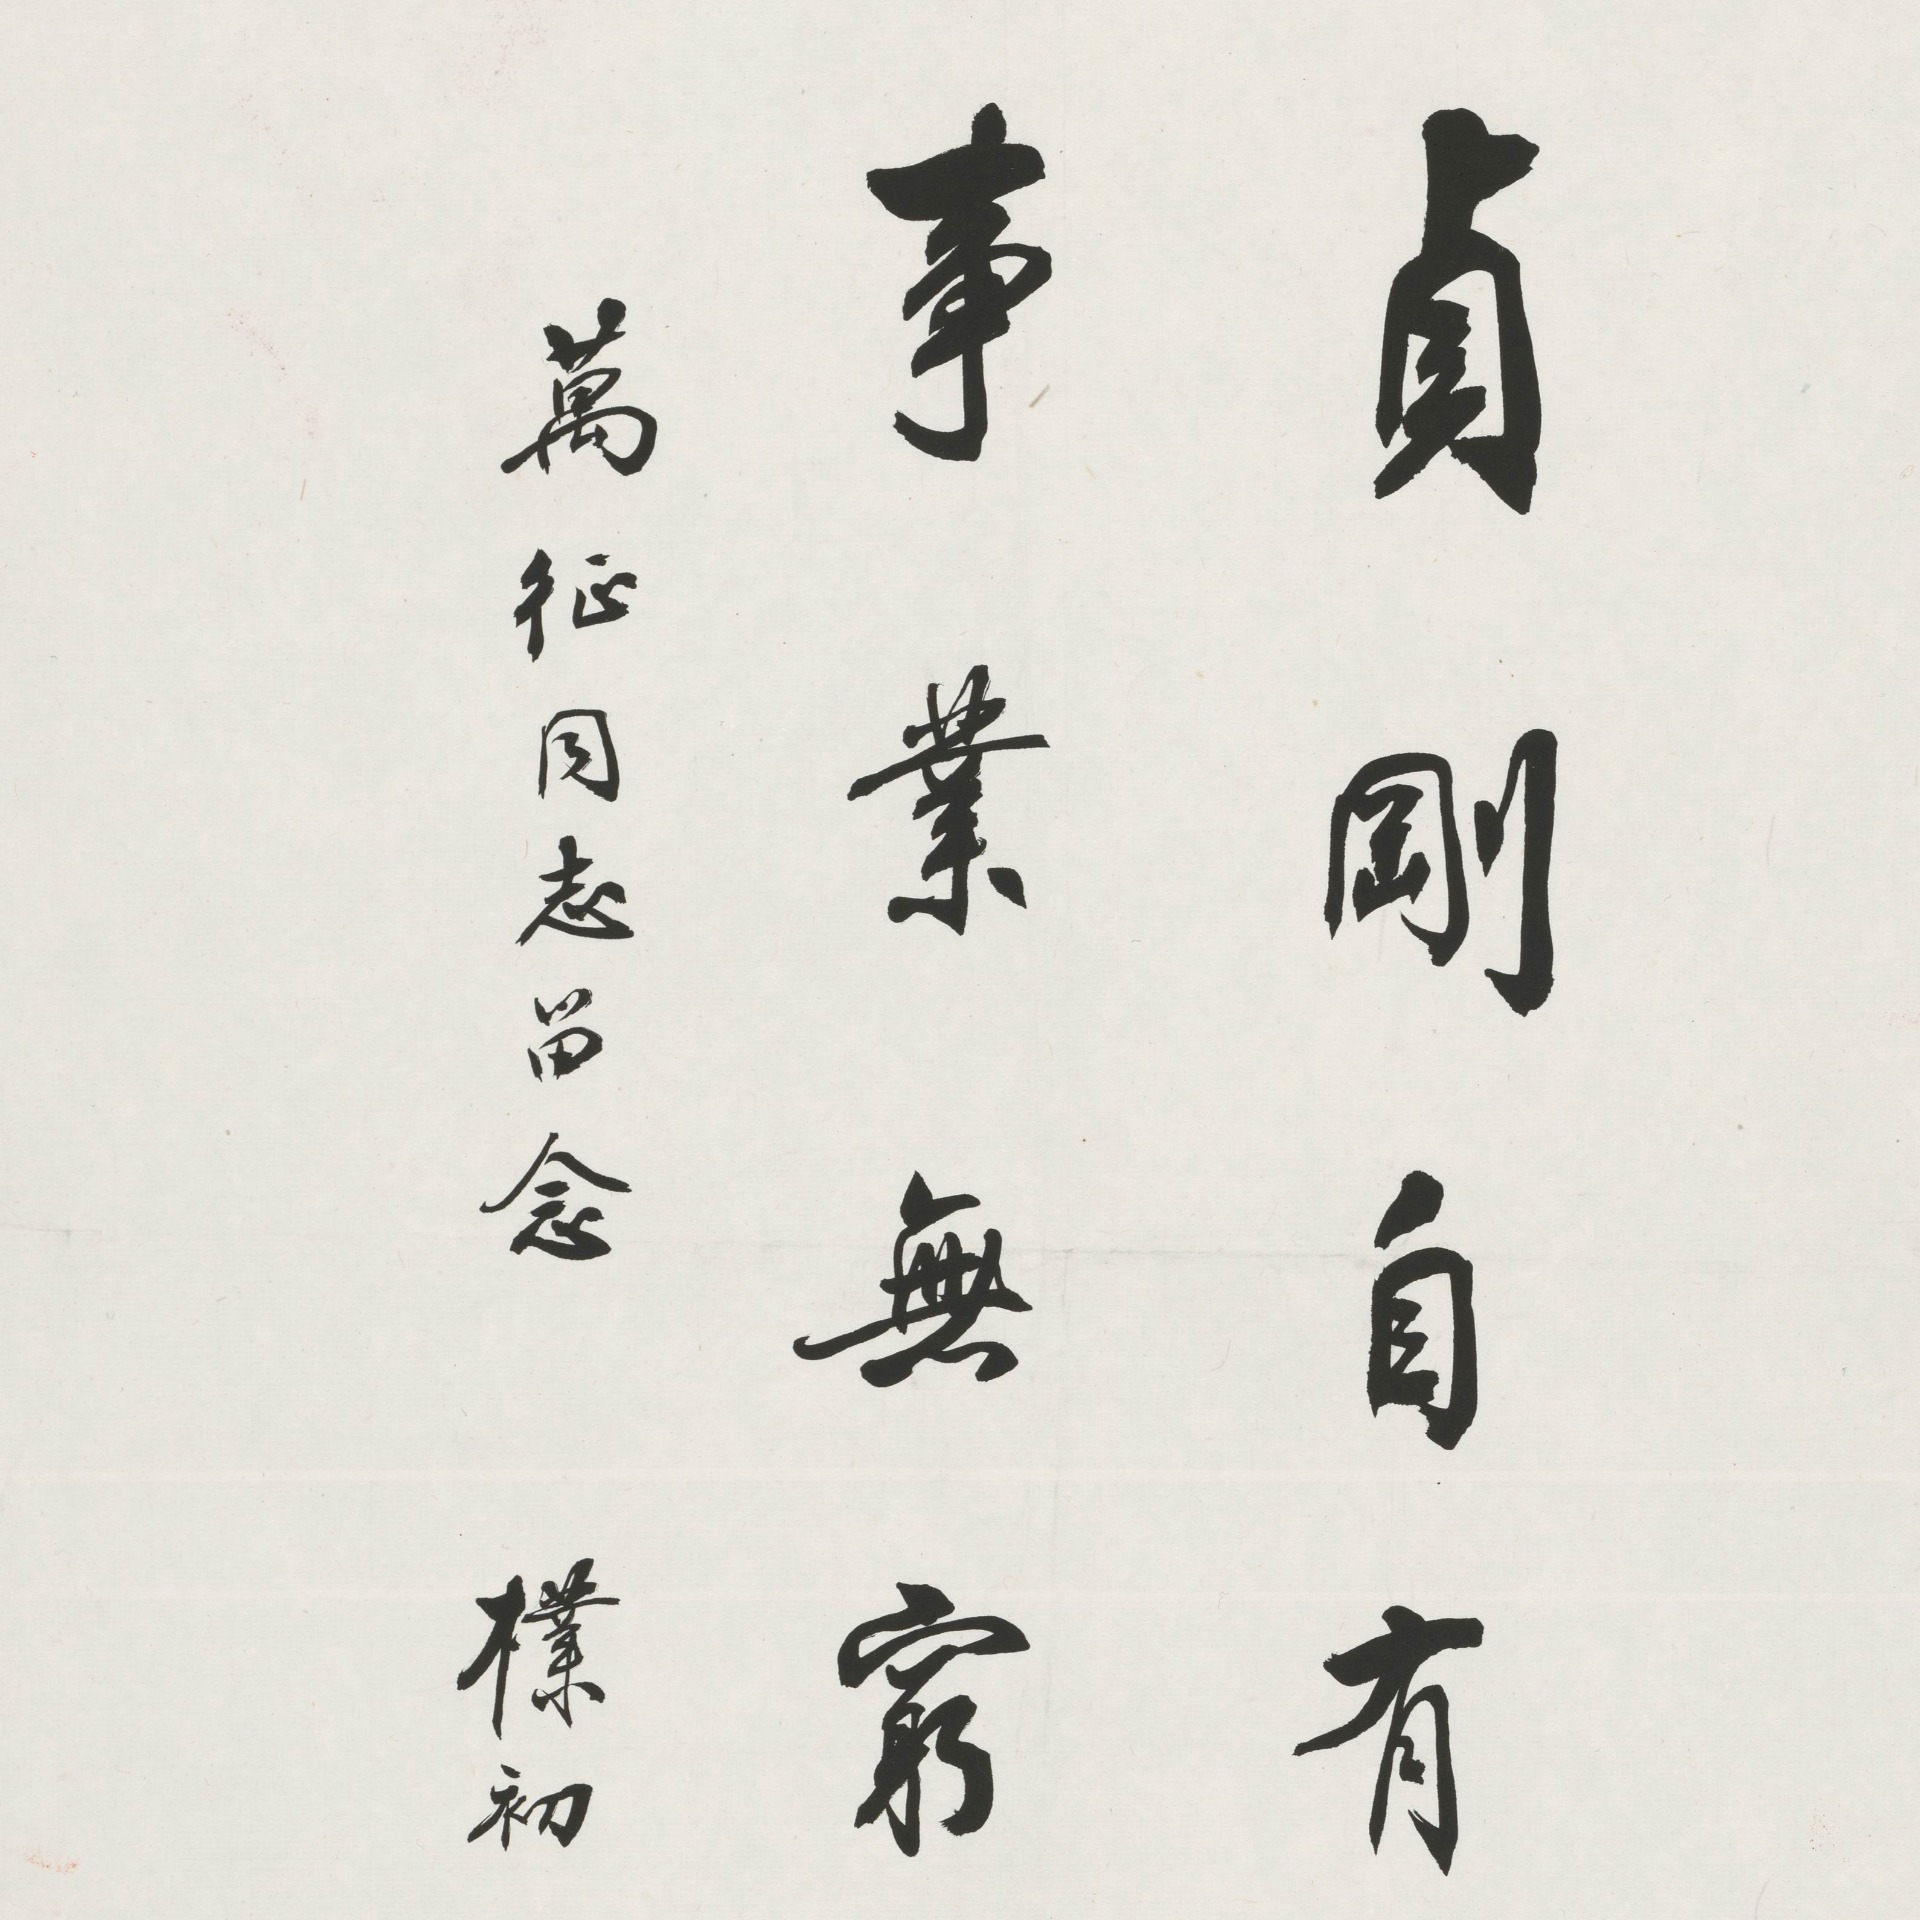 貞剛自有
事業無窮
萬征同志留念
樸初